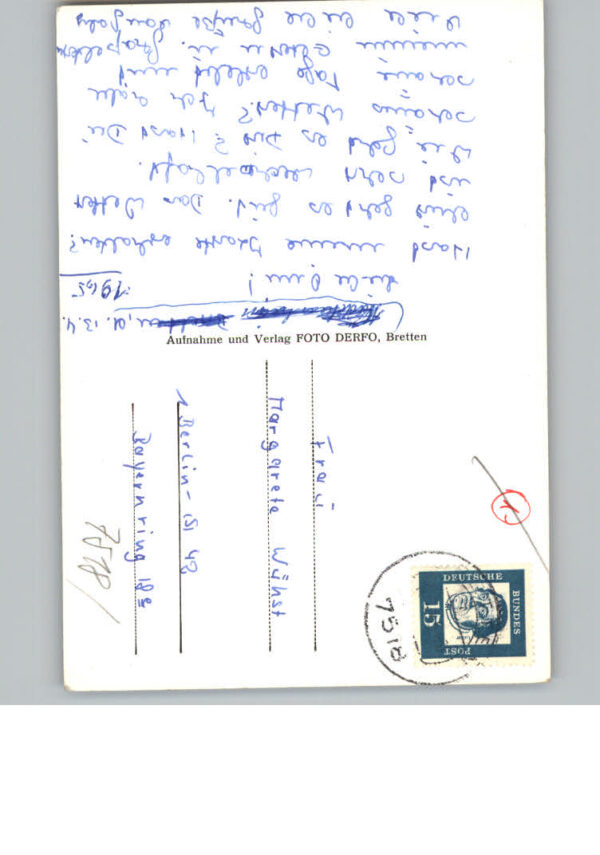 d. 13.4.
1965
Liebe Omi!
Hast meine Karte erhalten?
geht es gut. Das Wetter
ist sehr wechselhaft.
Wie geht es Dir? Hast Du
schönes Wetter? Ich
schöne Tage erlebt mit
meinen Eltern u.
Viele liebe Grüße
Aufnahme und Verlag FOTO DERFO, Bretten
Frau
Margarete Wühst
1 Berlin-(S) 42
Bayernring 18E
7518
DEUTSCHE
BUNDES
POST
15
7518